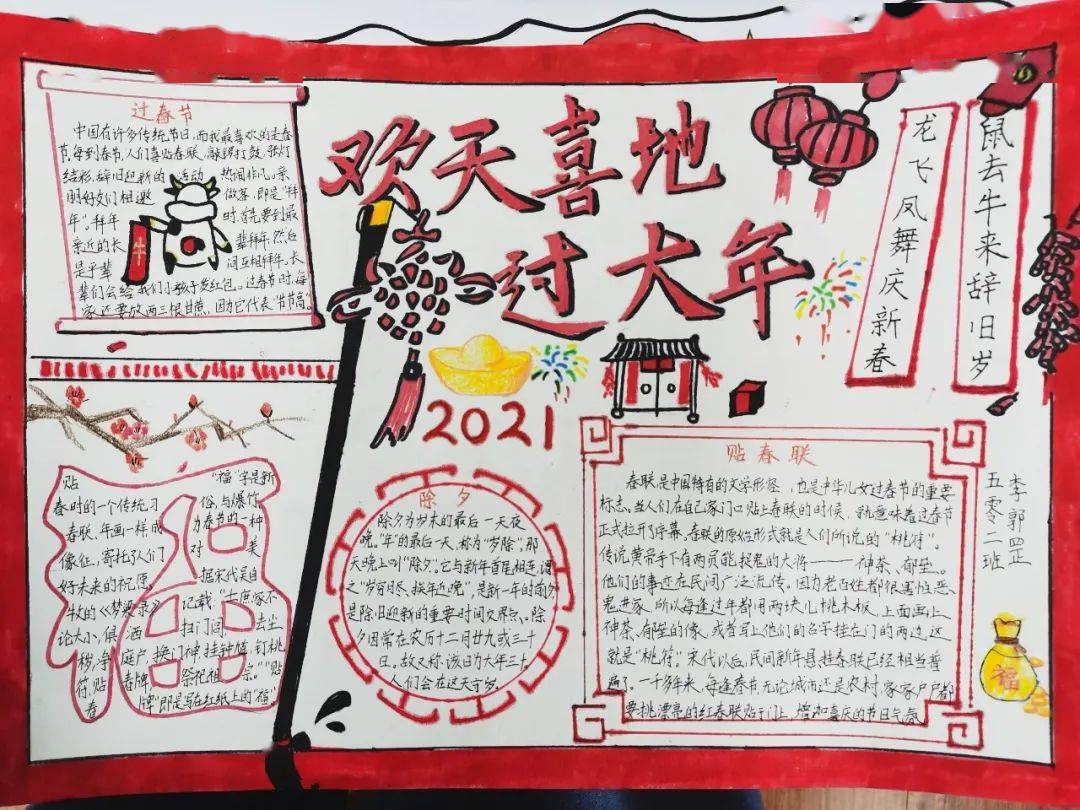 过春节
中国有许多传统节日,而我最喜欢的是春
节,每到春节,人们喜贴春联、敲锣打鼓、张灯
结彩,辞旧迎新的活动 热闹非凡。亲
朋好友们相邀 做客,即是"拜
年"。拜年 时,首先要到最
亲近的长 辈拜年,然后
是平辈 间互相拜年。长
辈们会给我们小孩子发红包。过春节时,每
家还要放两三根甘蔗,因为它代表"节节高"
牛
欢天喜地
过大年
2021
龙飞凤舞庆新春
鼠去牛来辞旧岁
五零二班
李郭四正
贴 "福"字是新
春时的一个传统习 俗,与爆竹
春联、年画一样,成 为春节的一种
像征,寄托了人们 对 美
好未来的祝愿。 据宋代吴自
牧的《梦粱录》 记载:"士庶家不
论大小,俱洒 扫门闾, 去尘
秽,净庭户,换门神,挂钟馗,钉桃
符,贴春牌, 祭祀祖宗。""贴
春 牌"即是写在红纸上的"福"
除夕
除夕为岁末的最后一天夜
晚。"年"的最后一天,称为"岁除",那
天晚上叫"除夕"。它与新年首尾相连,谓
之"岁穷月尽,挨年近晚",是新一年的前夕
是除旧迎新的重要时间交界点。除
夕因常在农历十二月廿九或三十
日,故又称该日为大年三十。
人们会在这天守岁。
贴春联
春联是中国特有的文学形式,也是中华儿女过春节的重要
标志。当人们在自己家门口贴上春联的时候,就意味着过春节
正式拉开了序幕,春联的原始形式就是人们所说的"桃符"。
传说黄帝手下有两员能捉鬼的大将——神荼、郁垒。
他们的事迹在民间广泛流传。因为老百姓都很害怕恶
鬼进家,所以每逢过年都用两块儿桃木板,上面画上
神荼、郁垒的像,或者写上他们的名字挂在门的两边,这
就是"桃符"。宋代以后,民间新年悬挂春联已经相当普
遍了。一千多年来,每逢春节,无论城市还是农村,家家户户都
要挑漂亮的红春联贴于门上,增加喜庆的节日气氛
福